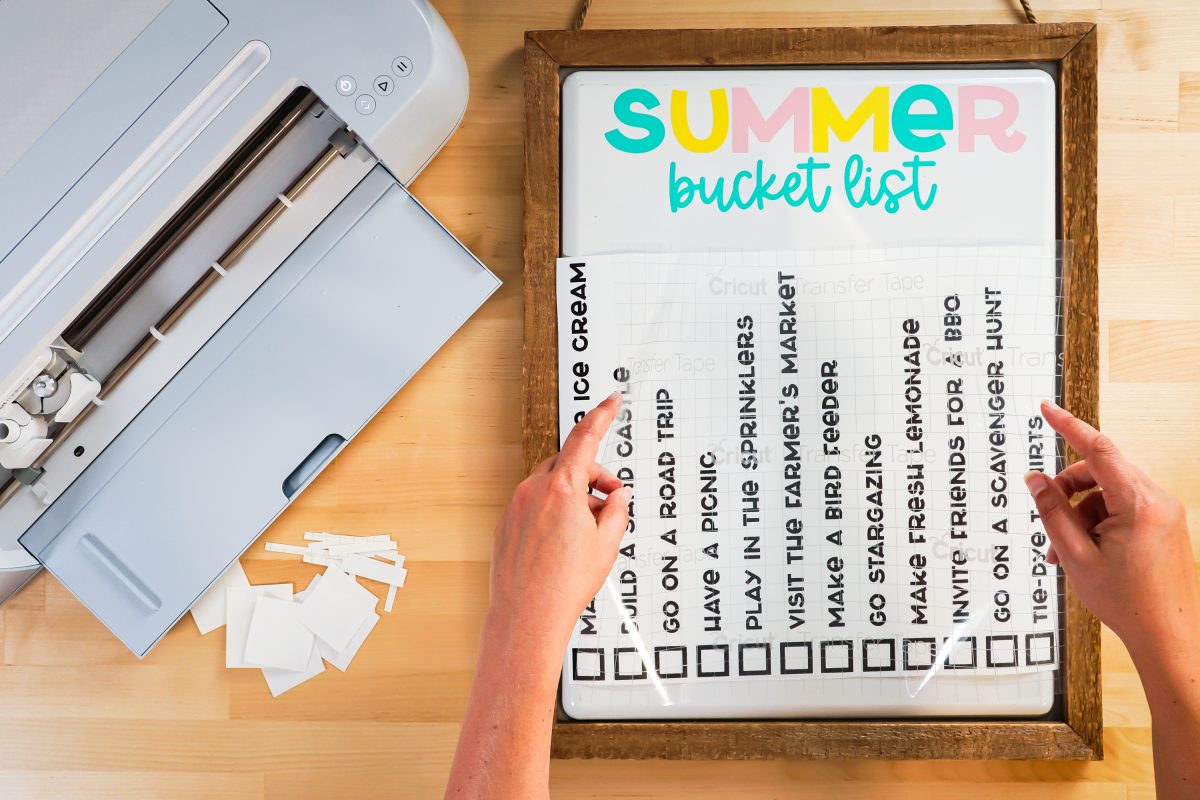 SUMMER
bucket list
ICE CREAM
BUILD A SAND CASTLE
GO ON A ROAD TRIP
HAVE A PICNIC
PLAY IN THE SPRINKLERS
VISIT THE FARMER'S MARKET
MAKE A BIRD FEEDER
GO STARGAZING
MAKE FRESH LEMONADE
INVITE FRIENDS FOR A BBQ
GO ON A SCAVENGER HUNT
TIE-DYE
Cricut Transfer Tape
Transfer Tape
Cricut
Cricut Transfer Tape
Cricut
Cricut